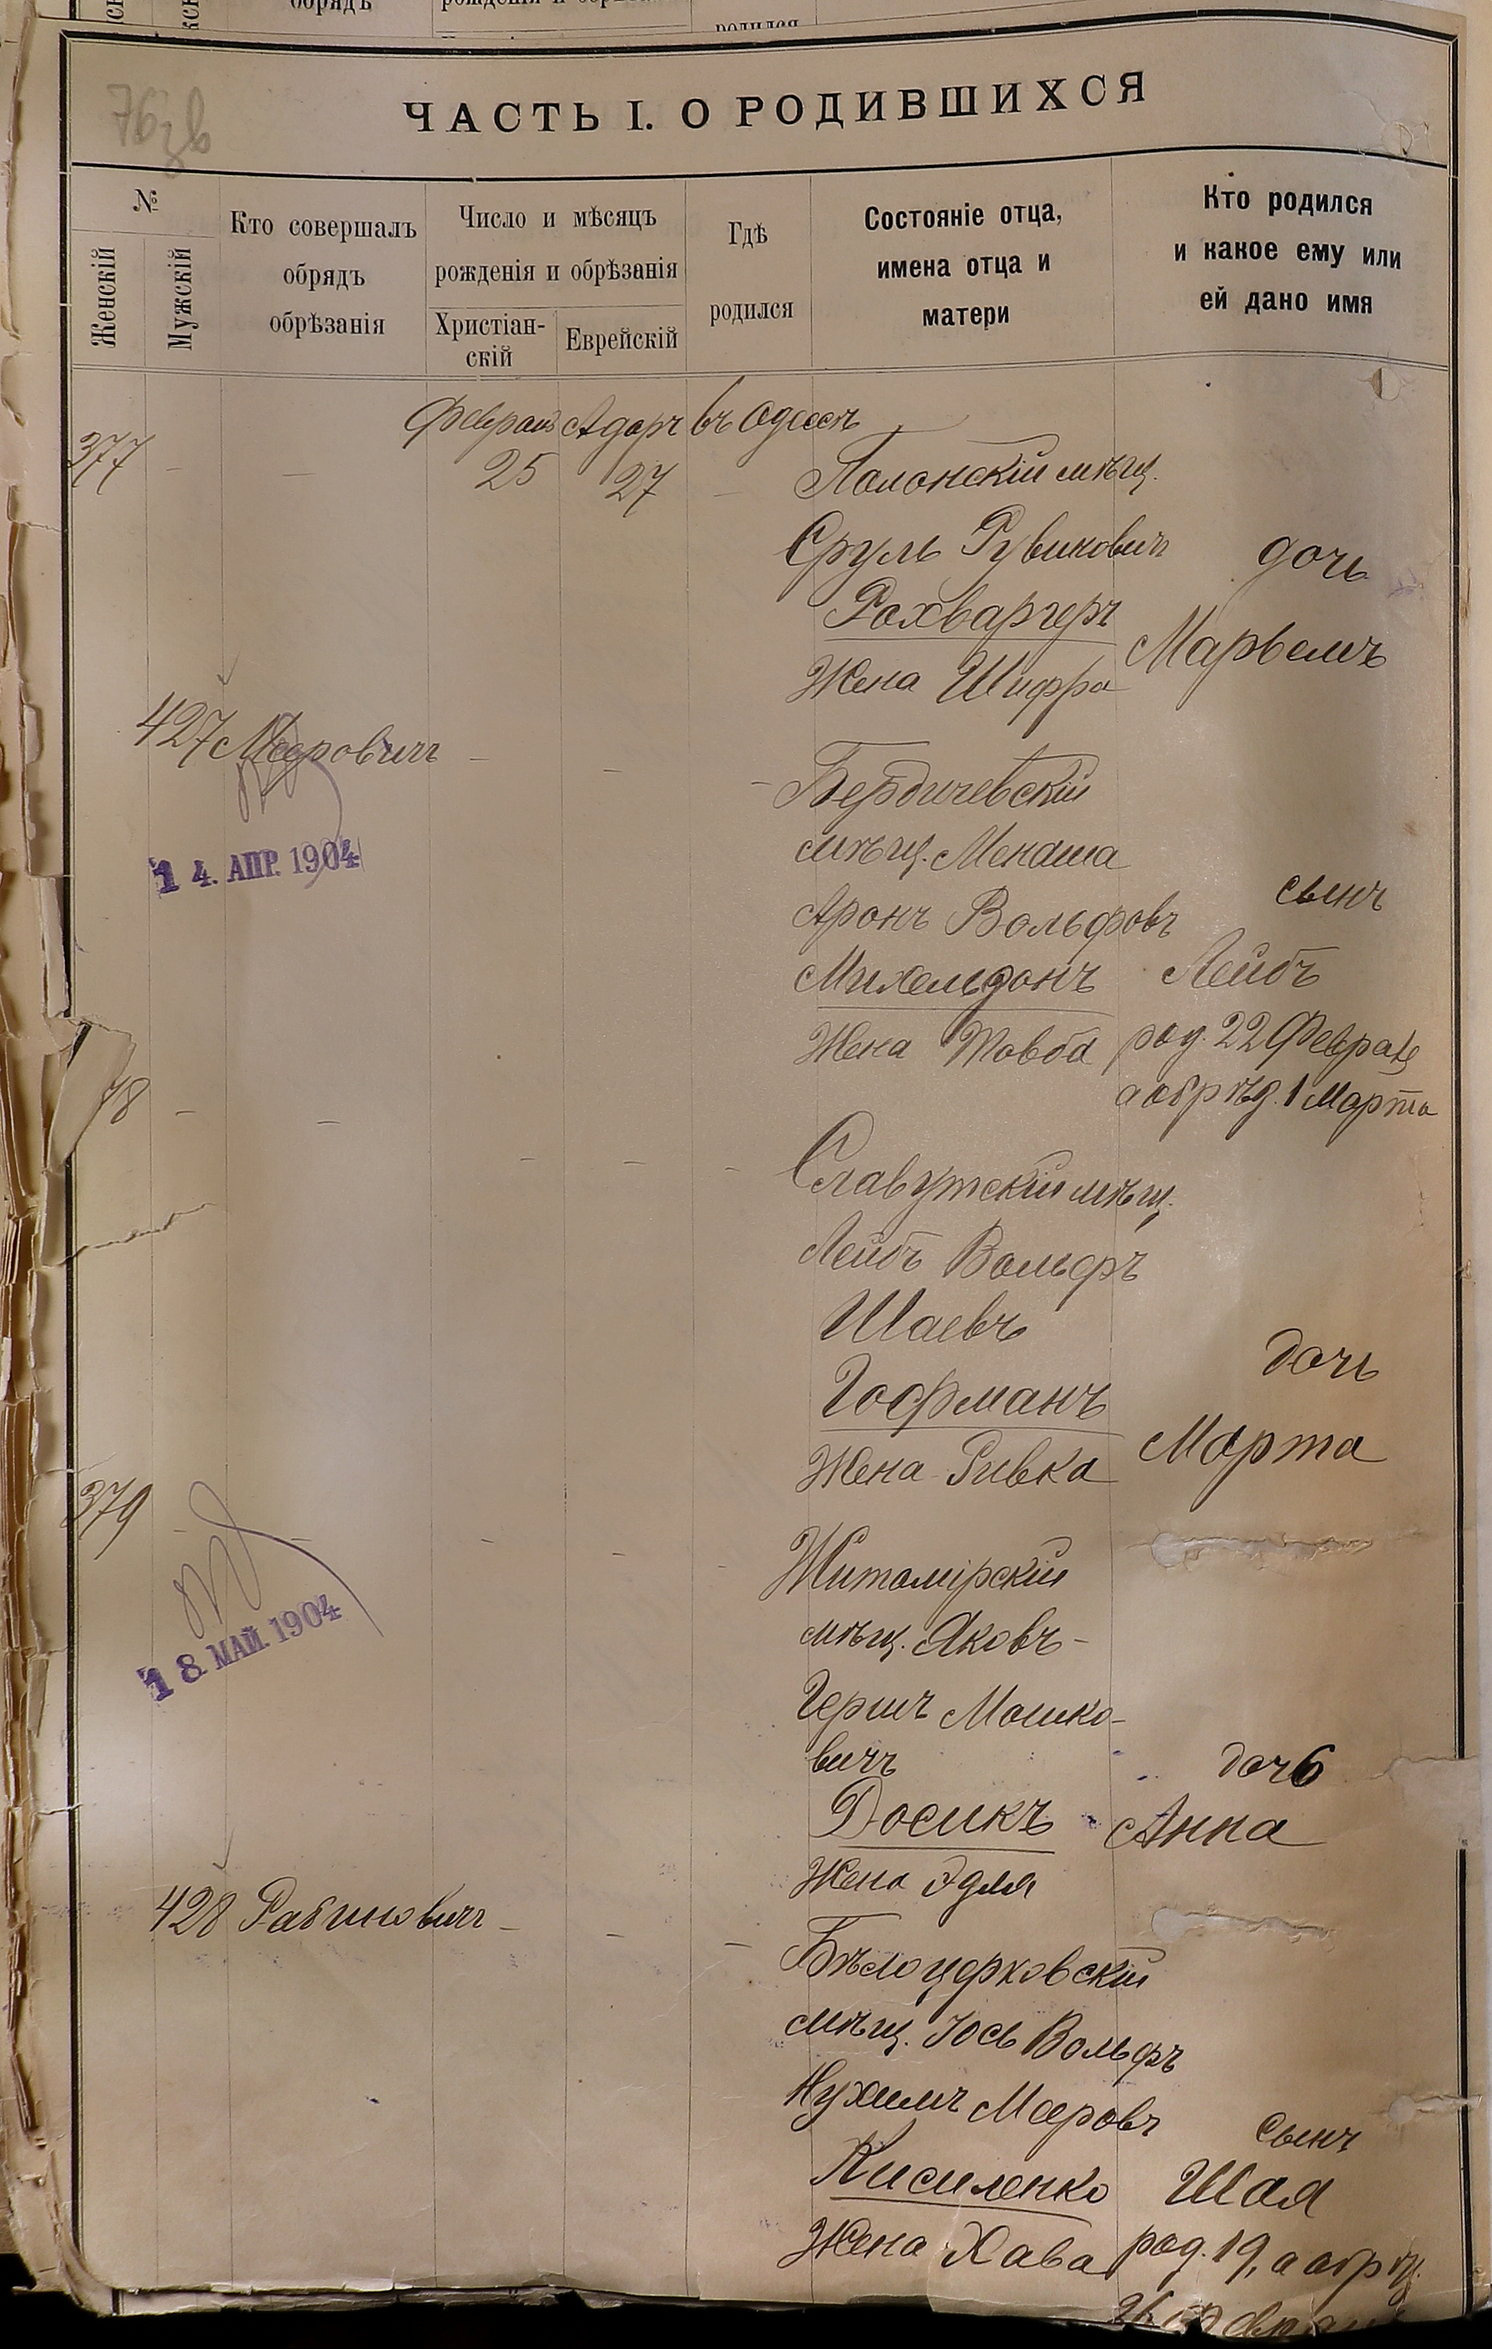 обрядъ
родился
76
ЧАСТЬ I. О РОДИВШИХСЯ
№
Женскій
Мужскій
Кто совершалъ
обрядъ
обрѣзанія
Число и мѣсяцъ
рожденія и обрѣзанія
Христіан-
скій
Еврейскій
Гдѣ
родился
Состояніе отца,
имена отца и
матери
Кто родился
и какое ему или
ей дано имя
Февраль Адаръ въ Одессѣ
377 - - 25 27 - Полонскій мѣщ.
Сруль Рувиновичъ
дочь
Рохваргеръ
Марвемъ
Жена Шифра
427 Меровичъ - - - Бердичевскій
14. АПР. 1904
мѣщ. Менаша
Аронъ Вольфовъ
сынъ
Михельзонъ
Лейбъ
Жена Товба
род. 22 Февраля
а обрѣз. 1 Марта
78 - - - - - Славутскій мѣщ.
Лейбъ Вольфъ
Шаевъ
дочь
Гофманъ
Марта
Жена Ривка
379 - - - - - Житомірскій
18. МАЙ. 1904
мѣщ. Яковъ-
Гершъ Мошко-
вичъ
дочь
Досикъ
Анна
Жена Эдля
428 Рабиновичъ - - - Бѣлоцерковскій
мѣщ. Іось Вольфъ
Нухимъ Меровъ
сынъ
Кисиленко
Шая
Жена Хава
род. 19, а обрѣз.
26 Февраля